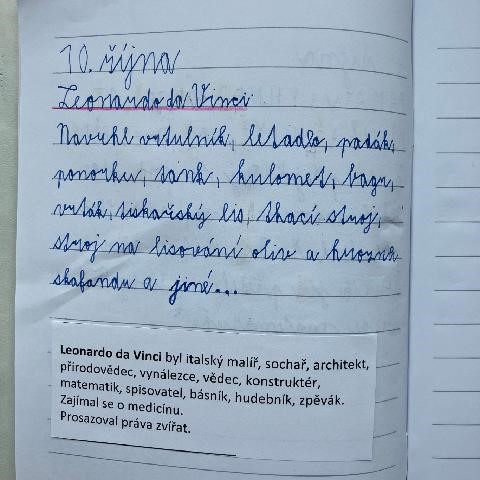 10. října
Leonardo da Vinci
Navrhl vrtulník, letadlo, padák,
ponorku, tank, kulomet, bagr,
vrták, tiskařský lis, tkací stroj,
stroj na lisování oliv a hrozna
skafandr a jiné...
Leonardo da Vinci byl italský malíř, sochař, architekt,
přírodovědec, vynálezce, vědec, konstruktér,
matematik, spisovatel, básník, hudebník, zpěvák.
Zajímal se o medicínu.
Prosazoval práva zvířat.